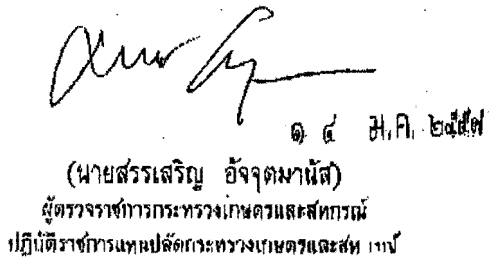 ๑ ๔ ม.ค. ๒๕๕๗
(นายสรรเสริญ อัจจุตมานัส)
ผู้ตรวจราชการกระทรวงเกษตรและสหกรณ์
ปฏิบัติราชการแทนปลัดกระทรวงเกษตรและสหกรณ์